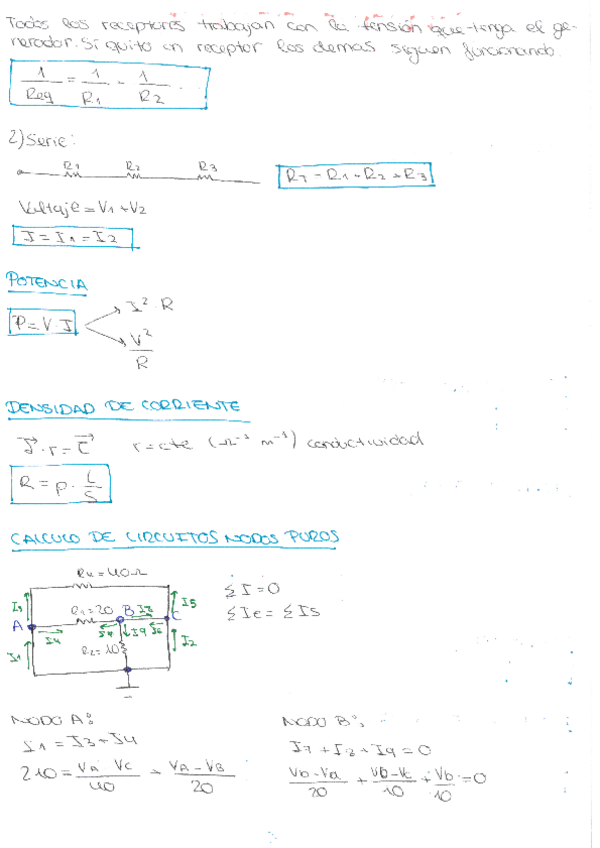 Todos los receptores trabajan con la tensión que tenga el ge-
nerador. Si quito un receptor los demas siguen funcionando.
1/Req = 1/R1 - 1/R2
2) Serie:
R1 R2 R3 RT = R1 + R2 + R3
Voltaje = V1 + V2
I = I1 = I2
POTENCIA
P = V · I
I² · R
V²/R
DENSIDAD DE CORRIENTE
r = cte (Ω⁻¹ m⁻¹) conductividad
R = ρ · L/S
CALCULO DE CIRCUITOS NODOS PUROS
R4 = 40Ω
ΣI = 0
I3 R1 = 20 B I5
ΣIe = ΣIs
A I4 I9 I2
I1 R2 = 10
NODO A: NODO B:
I1 = I3 + I4 I7 + I8 + I9 = 0
210 = VA VC/40 - VA - VB/20 Vb - Va/20 + Vb - Vc/10 + Vb/10 = 0